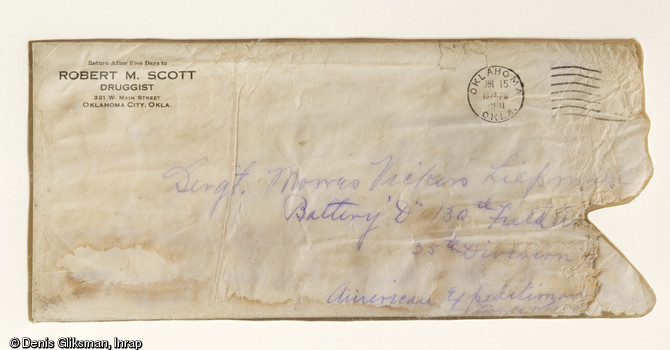 Return After Five Days to
ROBERT M. SCOTT
DRUGGIST
321 W. MAIN STREET
OKLAHOMA CITY, OKLA.
OKLAHOMA
JUL 15
OKLA.
Sergt. Morris Vickers
Battery "D" 130th Field
35th Division
American Expeditionary
© Denis Gliksman, Inrap